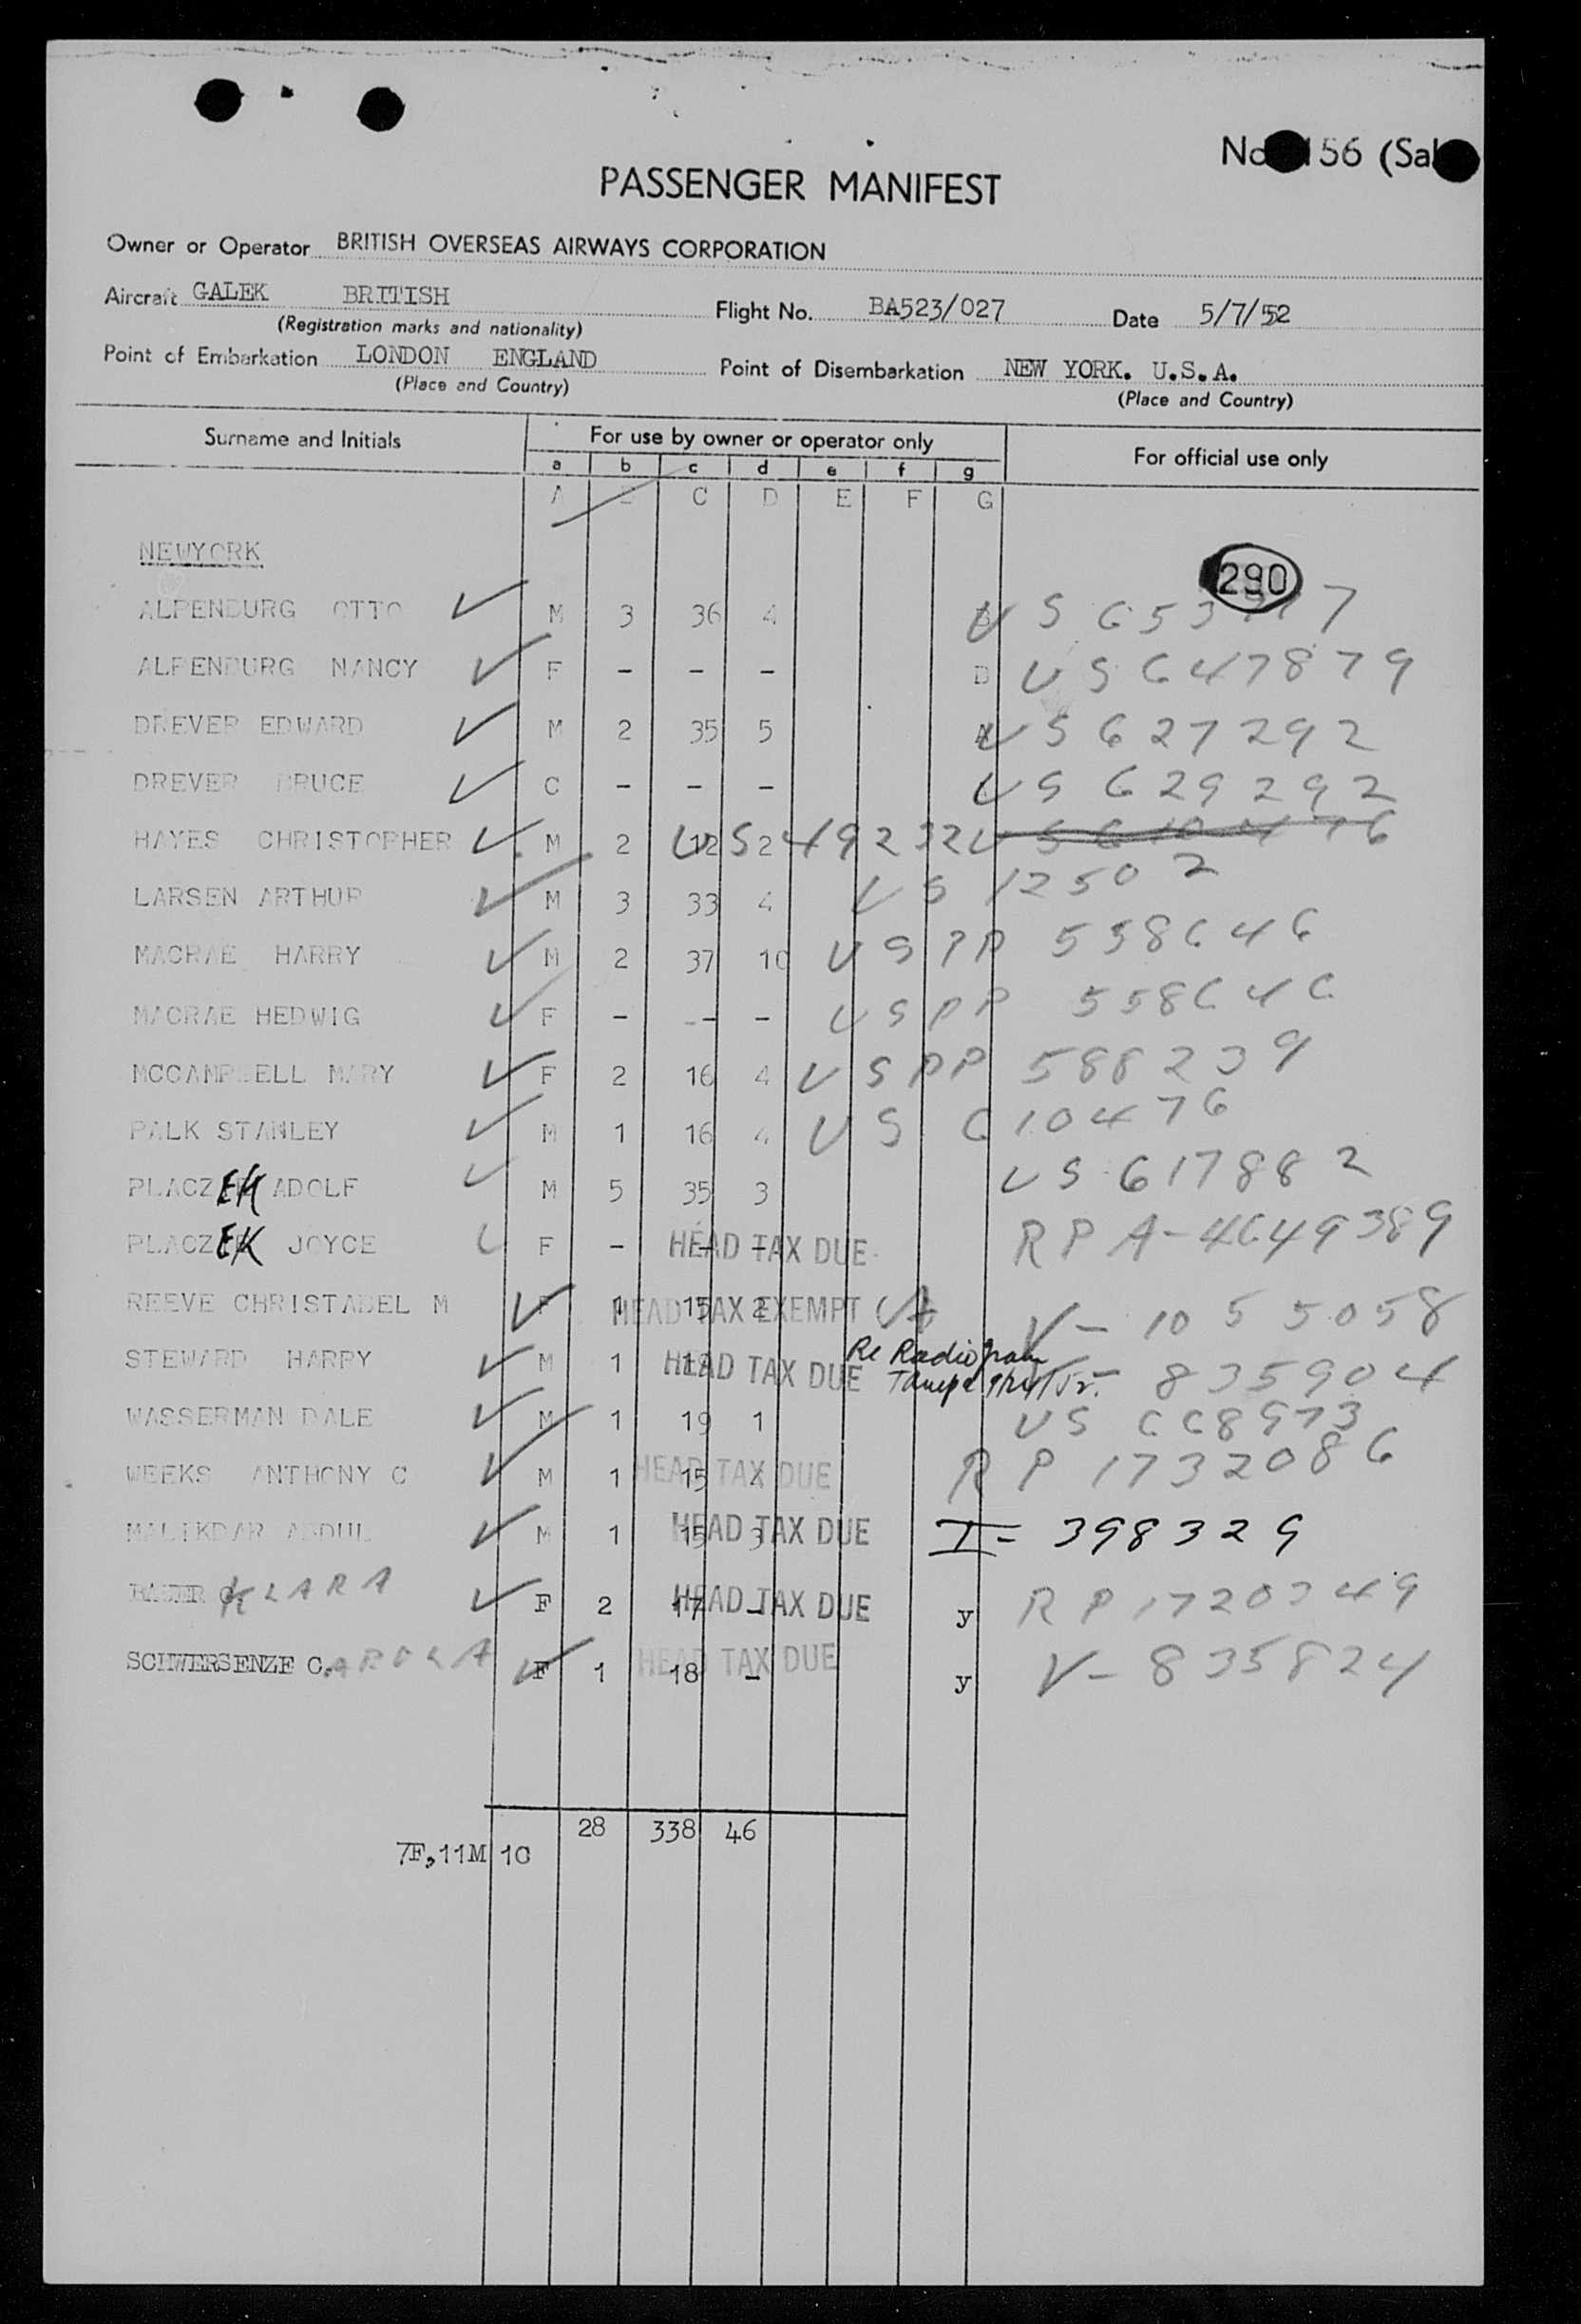 No 156 (Sal
PASSENGER MANIFEST
Owner or Operator BRITISH OVERSEAS AIRWAYS CORPORATION
Aircraft GALEK BRITISH Flight No. BA523/027 Date 5/7/52
(Registration marks and nationality)
Point of Embarkation LONDON ENGLAND Point of Disembarkation NEW YORK. U.S.A.
(Place and Country) (Place and Country)
Surname and Initials For use by owner or operator only For official use only
a b c d e f g
A C D E F G
NEWYORK
290
ALPENBURG OTTO M 3 36 4 US
ALPENBURG NANCY F - - - D US 647879
DREVER EDWARD M 2 35 5 US 627292
DREVER BRUCE C - - - US 629292
HAYES CHRISTOPHER M 2 12 2 US 49232 US 610476
LARSEN ARTHUR M 3 33 4 US 12502
MACRAE HARRY M 2 37 10 US PP 558646
MACRAE HEDWIG F - - - US PP 558646
MCCAMPBELL MARY F 2 16 4 US PP 588239
PALK STANLEY M 1 16 4 US 610476
PLACZEK ADOLF M 5 35 3 US 617882
PLACZEK JOYCE F - - - HEAD TAX DUE RP A-4649389
REEVE CHRISTABEL M F 1 15 2 HEAD TAX EXEMPT V- 1055058
STEWARD HARRY M 1 HEAD TAX DUE Re Radiogram V- 835904
WASSERMAN DALE M 1 19 1 US 668973
WEEKS ANTHONY C M 1 15 HEAD TAX DUE RP 1732086
MALIKDAR ABDUL M 1 15 3 HEAD TAX DUE I- 398329
KLARA F 2 17 - HEAD TAX DUE y RP 1720349
SCHWERSENZE CAROLA F 1 18 - HEAD TAX DUE y V- 835824
28 338 46
7F,11M 1C